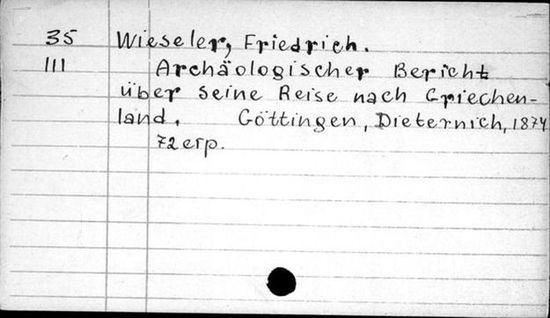 35 Wieseler, Friedrich.
111 Archäologischer Bericht
über seine Reise nach Griechen-
land. Göttingen, Dieternich, 1874
72 erp.